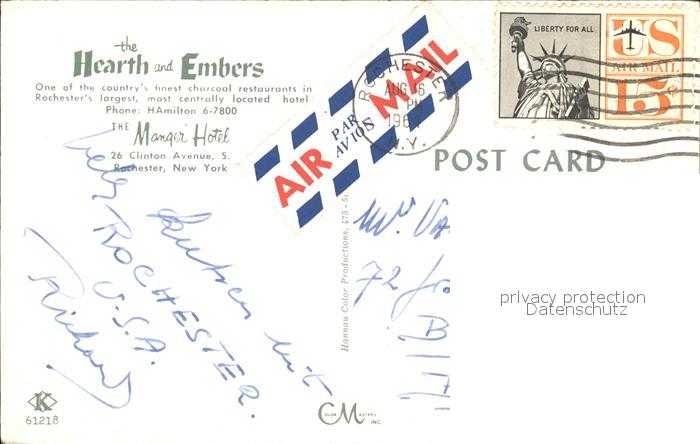 the
Hearth and Embers
One of the country's finest charcoal restaurants in
Rochester's largest, most centrally located hotel.
Phone: HAmilton 6-7800
THE Manger Hotel
26 Clinton Avenue, S.
Rochester, New York
AIR MAIL
PAR AVION
ROCHESTER
AUG 16
PM
N.Y.
LIBERTY FOR ALL
US
AIR MAIL
15¢
POST CARD
aus
ROCHESTER.
U.S.A.
Richard
Hannau Color Productions, 475-5
72
B
privacy protection
Datenschutz
K
61218
COLOR MASTERS INC.